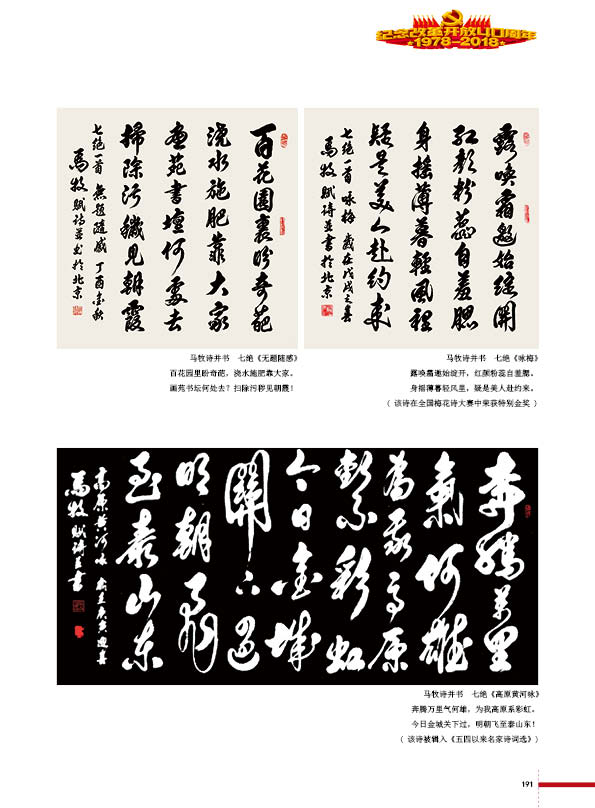 纪念改革开放40周年
1978-2018
百花園裏盼奇葩
澆水施肥靠大家
畫苑書壇何處去
掃除污穢見朝霞
七绝一首 無題隨感 丁酉金秋
馬牧賦诗並书於北京
马牧诗并书 七绝《无题随感》
百花园里盼奇葩，浇水施肥靠大家。
画苑书坛何处去？扫除污秽见朝霞！
露喚霜邀始綻開
紅顏粉蕊自羞腮
身摇薄暮輕風裡
疑是美人赴约來
七绝一首 咏梅 歲在戊戌之春
馬牧賦詩並書於北京
马牧诗并书 七绝《咏梅》
露唤霜邀始绽开，红颜粉蕊自羞腮。
身摇薄暮轻风里，疑是美人赴约来。
( 该诗在全国梅花诗大赛中荣获特别金奖 )
奔騰萬里
氣何雄
為我高原
繫彩虹
今日金城
關下過
明朝飛
至泰山东
高原黄河咏
馬牧賦詩並書
马牧诗并书 七绝《高原黄河咏》
奔腾万里气何雄，为我高原系彩虹。
今日金城关下过，明朝飞至泰山东！
( 该诗被辑入《五四以来名家诗词选》)
191